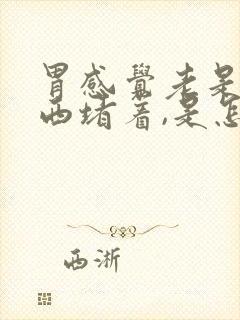 胃感觉老是
西堵着,是怎
西浙